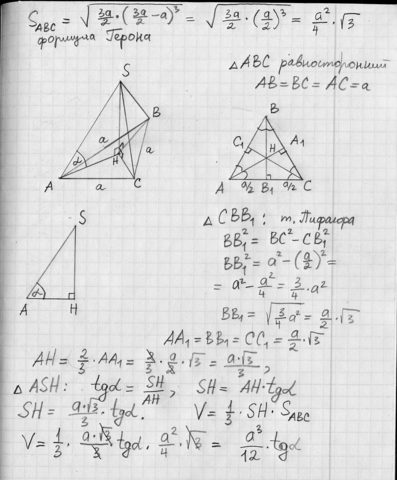 S_ABC = √(3a/2 · (3a/2 − a)³) = √(3a/2 · (a/2)³) = a²/4 · √3
формула Герона
△ ABC равносторонний
AB = BC = AC = a
S
B
a
a
H
α
A
a
C
B
C₁
A₁
H
A
a/2
B₁
a/2
C
S
α
A
H
△ CBB₁ : т. Пифагора
BB₁² = BC² − CB₁²
BB₁² = a² − (a/2)² =
= a² − a²/4 = 3/4 · a²
BB₁ = √(3/4 a²) = a/2 · √3
AA₁ = BB₁ = CC₁ = a/2 · √3
AH = 2/3 · AA₁ = 2/3 · a/2 · √3 = a·√3/3 ,
△ ASH : tgα = SH/AH , SH = AH · tgα
SH = a·√3/3 · tgα . V = 1/3 · SH · S_ABC
V = 1/3 · a·√3/3 · tgα · a²/4 · √3 = a³/12 · tgα